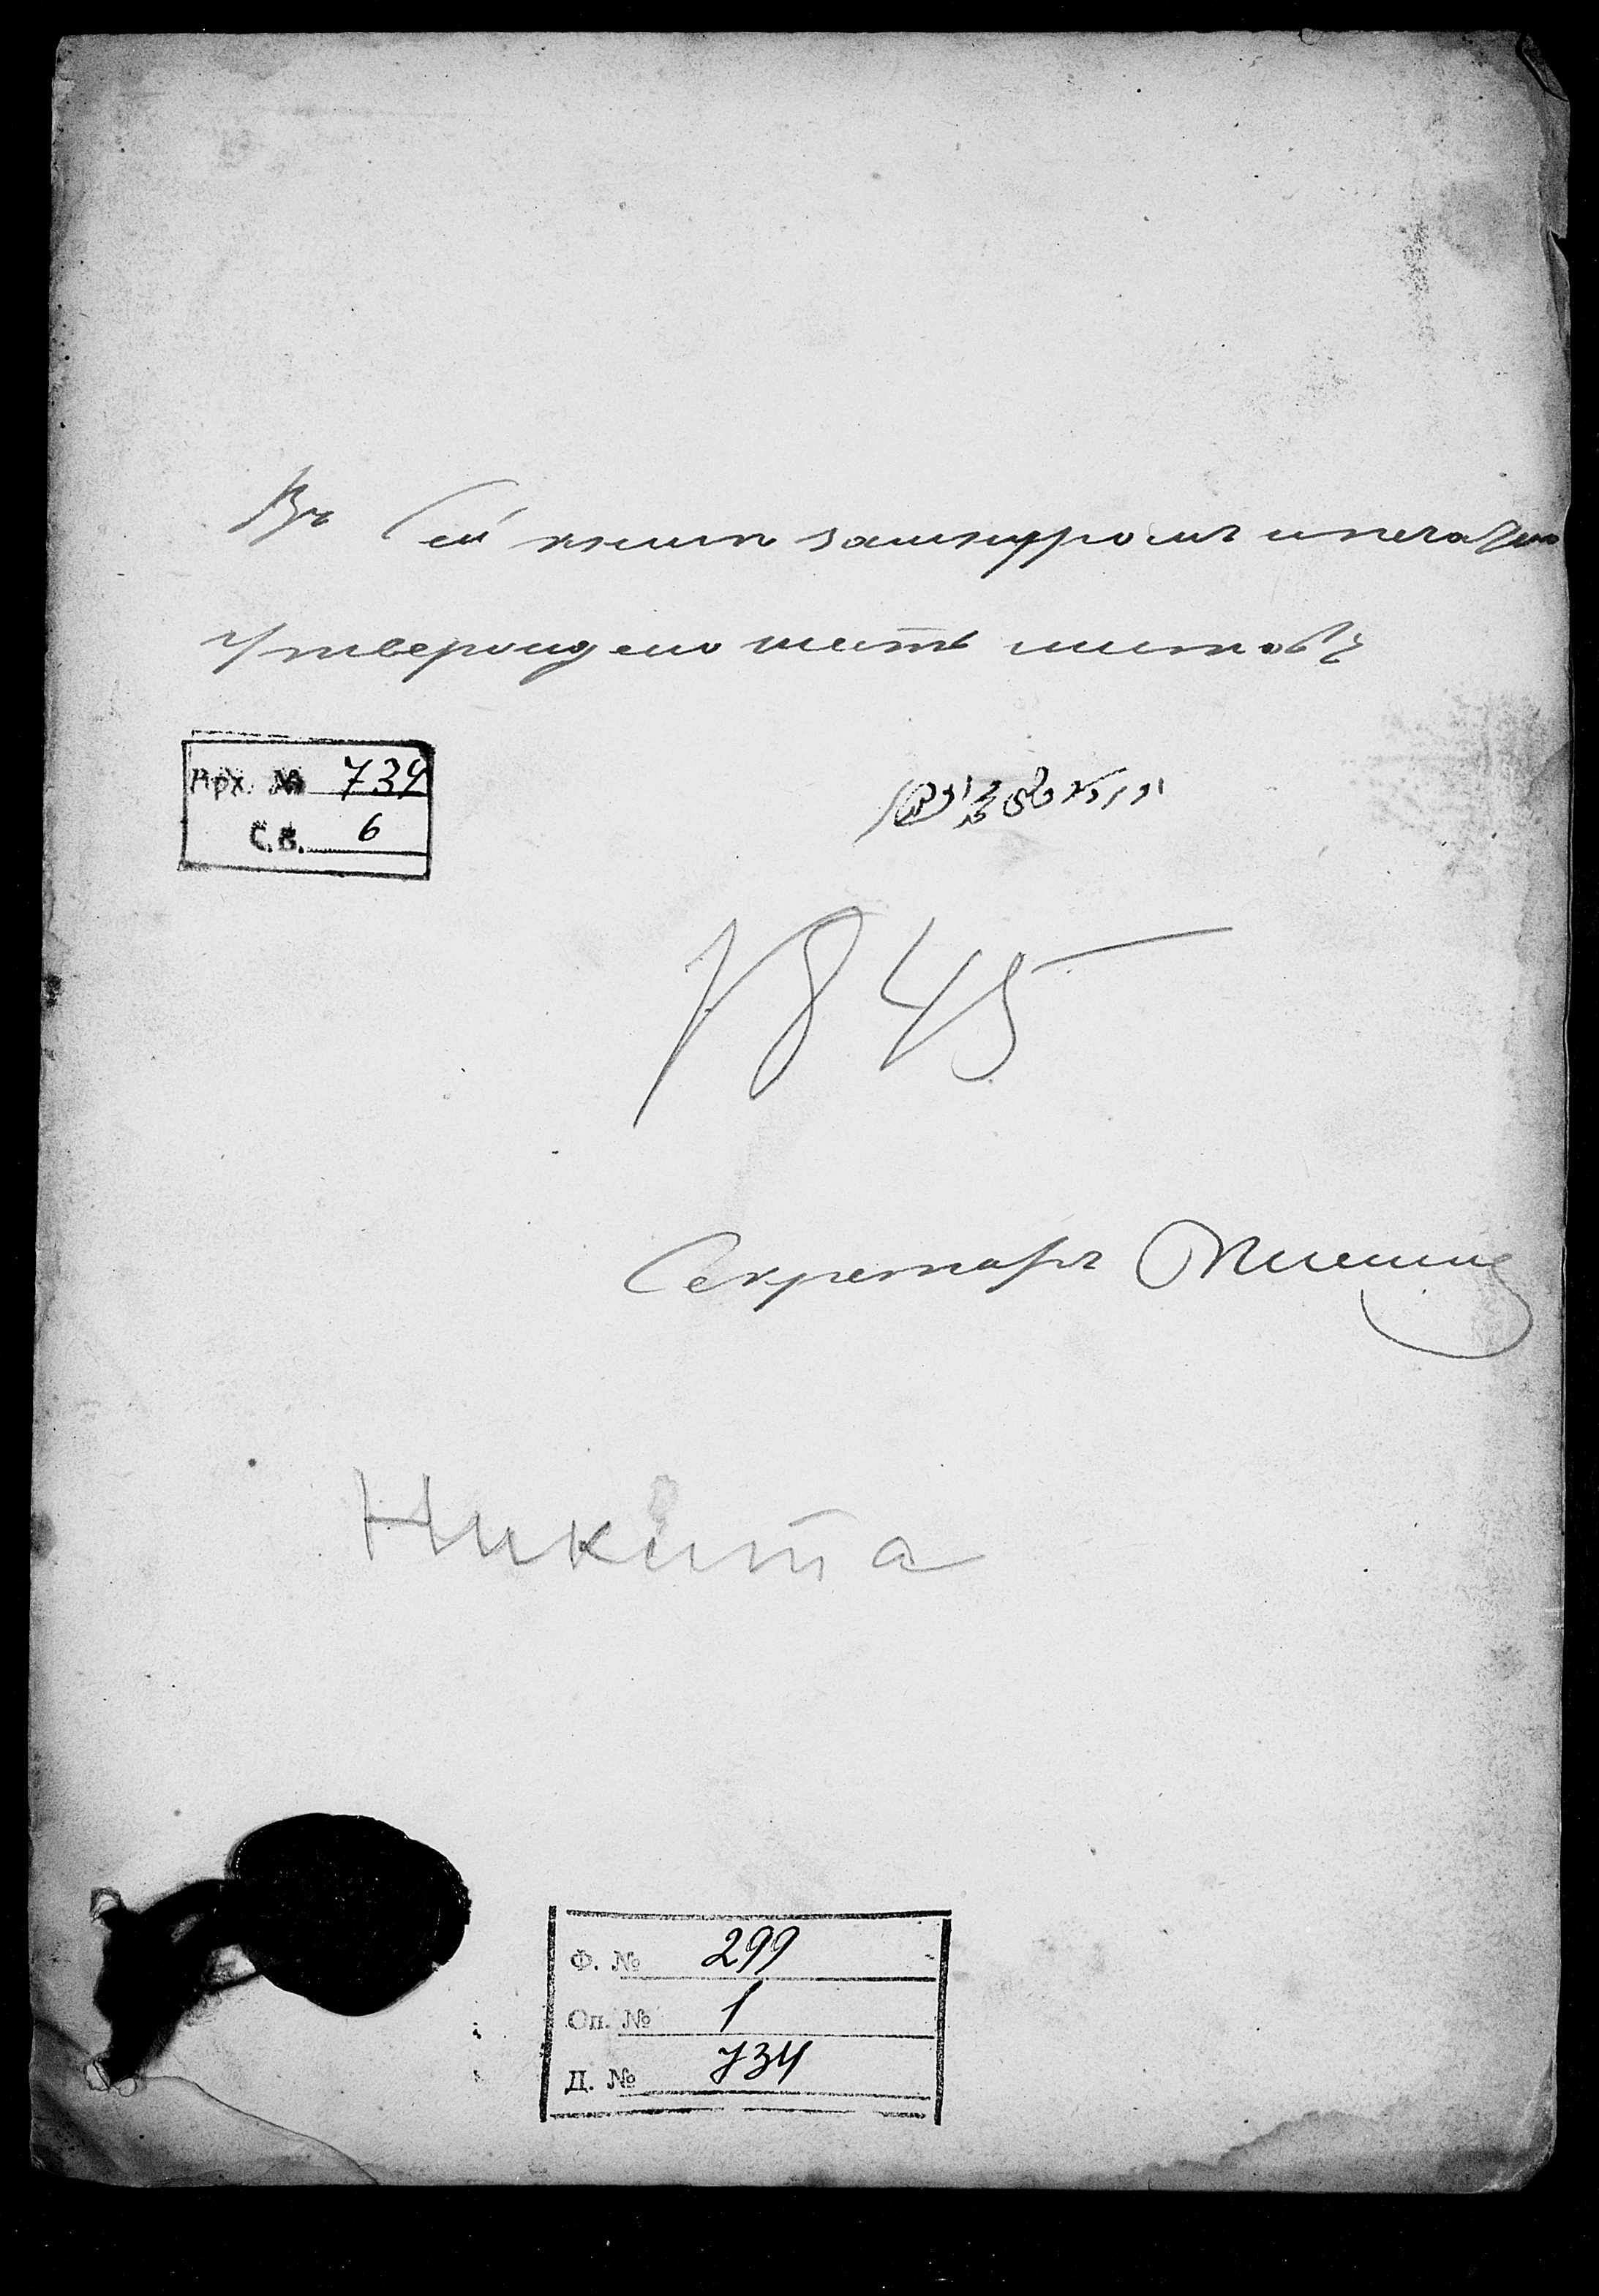 Въ Сей книги зашнуромъ и печатью
утверждено шесть листовъ
Арх. № 734
С.в. 6
1845
Секретарь
Никита
Ф. № 299
Оп. № 1
Д. № 734